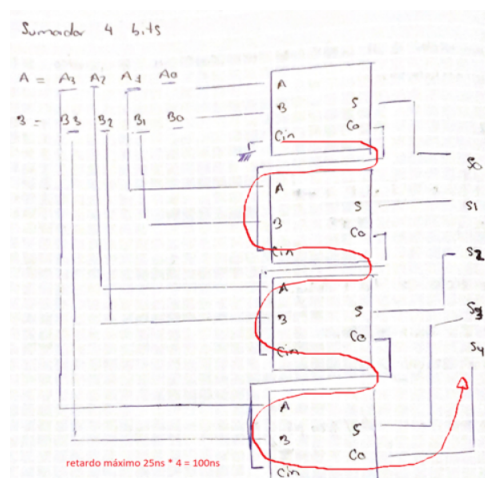 Sumador 4 bits
A = A3 A2 A1 A0
B = B3 B2 B1 B0
A
B
Cin
S
Co
S0
A
B
Cin
S
Co
S1
A
B
Cin
S
Co
S2
A
B
Cin
S
Co
S3
S4
retardo máximo 25ns * 4 = 100ns